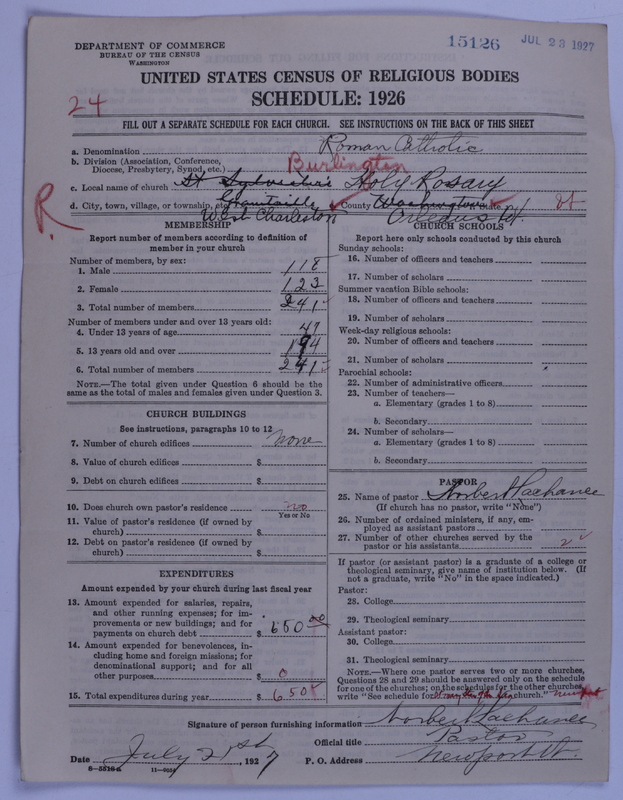 15126 JUL 23 1927
DEPARTMENT OF COMMERCE
BUREAU OF THE CENSUS
WASHINGTON
UNITED STATES CENSUS OF RELIGIOUS BODIES
24
SCHEDULE: 1926
FILL OUT A SEPARATE SCHEDULE FOR EACH CHURCH. SEE INSTRUCTIONS ON THE BACK OF THIS SHEET
a. Denomination Roman Catholic
b. Division (Association, Conference,
Diocese, Presbytery, Synod, etc.) Burlington
c. Local name of church St Sylvester's Holy Rosary
R.
d. City, town, village, or township, etc. Graniteville County Washington State Vt
West Charleston Orleans Vt.
MEMBERSHIP
Report number of members according to definition of
member in your church
Number of members, by sex:
1. Male 118
2. Female 123
3. Total number of members 241
Number of members under and over 13 years old:
4. Under 13 years of age 47
5. 13 years old and over 194
6. Total number of members 241
NOTE.—The total given under Question 6 should be the
same as the total of males and females given under Question 3.
CHURCH BUILDINGS
See instructions, paragraphs 10 to 12
7. Number of church edifices none
8. Value of church edifices $
9. Debt on church edifices $
10. Does church own pastor's residence no
Yes or No
11. Value of pastor's residence (if owned by
church) $
12. Debt on pastor's residence (if owned by
church) $
EXPENDITURES
Amount expended by your church during last fiscal year
13. Amount expended for salaries, repairs,
and other running expenses; for im-
provements or new buildings; and for
payments on church debt $ 650 00
14. Amount expended for benevolences, in-
cluding home and foreign missions; for
denominational support; and for all
other purposes $ 0
15. Total expenditures during year $ 650
CHURCH SCHOOLS
Report here only schools conducted by this church
Sunday schools:
16. Number of officers and teachers
17. Number of scholars
Summer vacation Bible schools:
18. Number of officers and teachers
19. Number of scholars
Week-day religious schools:
20. Number of officers and teachers
21. Number of scholars
Parochial schools:
22. Number of administrative officers
23. Number of teachers—
a. Elementary (grades 1 to 8)
b. Secondary
24. Number of scholars—
a. Elementary (grades 1 to 8)
b. Secondary
PASTOR
25. Name of pastor Norbert Lachance
(If church has no pastor, write "None")
26. Number of ordained ministers, if any, em-
ployed as assistant pastors
27. Number of other churches served by the
pastor or his assistants 2
If pastor (or assistant pastor) is a graduate of a college or
theological seminary, give name of institution below. (If
not a graduate, write "No" in the space indicated.)
Pastor:
28. College
29. Theological seminary
Assistant pastor:
30. College
31. Theological seminary
NOTE.—Where one pastor serves two or more churches,
Questions 28 and 29 should be answered only on the schedule
for one of the churches; on the schedules for the other churches
write "See schedule for church." Newport
Signature of person furnishing information Norbert Lachance
Official title Pastor
Date July 21st, 1927 P. O. Address Newport Vt.
8-5518a 11-9051